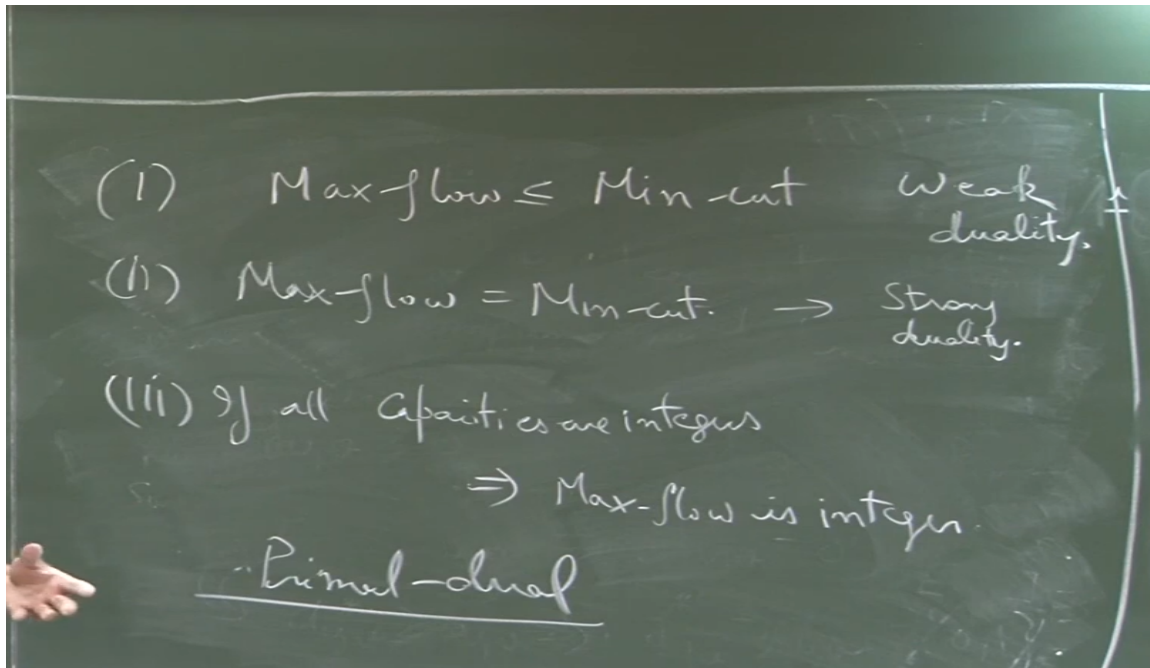 (I) Max-flow ≤ Min-cut Weak
duality.
(II) Max-flow = Min-cut. → Strong
duality.
(III) If all Capacities are integers
⇒ Max-flow is integer.
Primal-dual